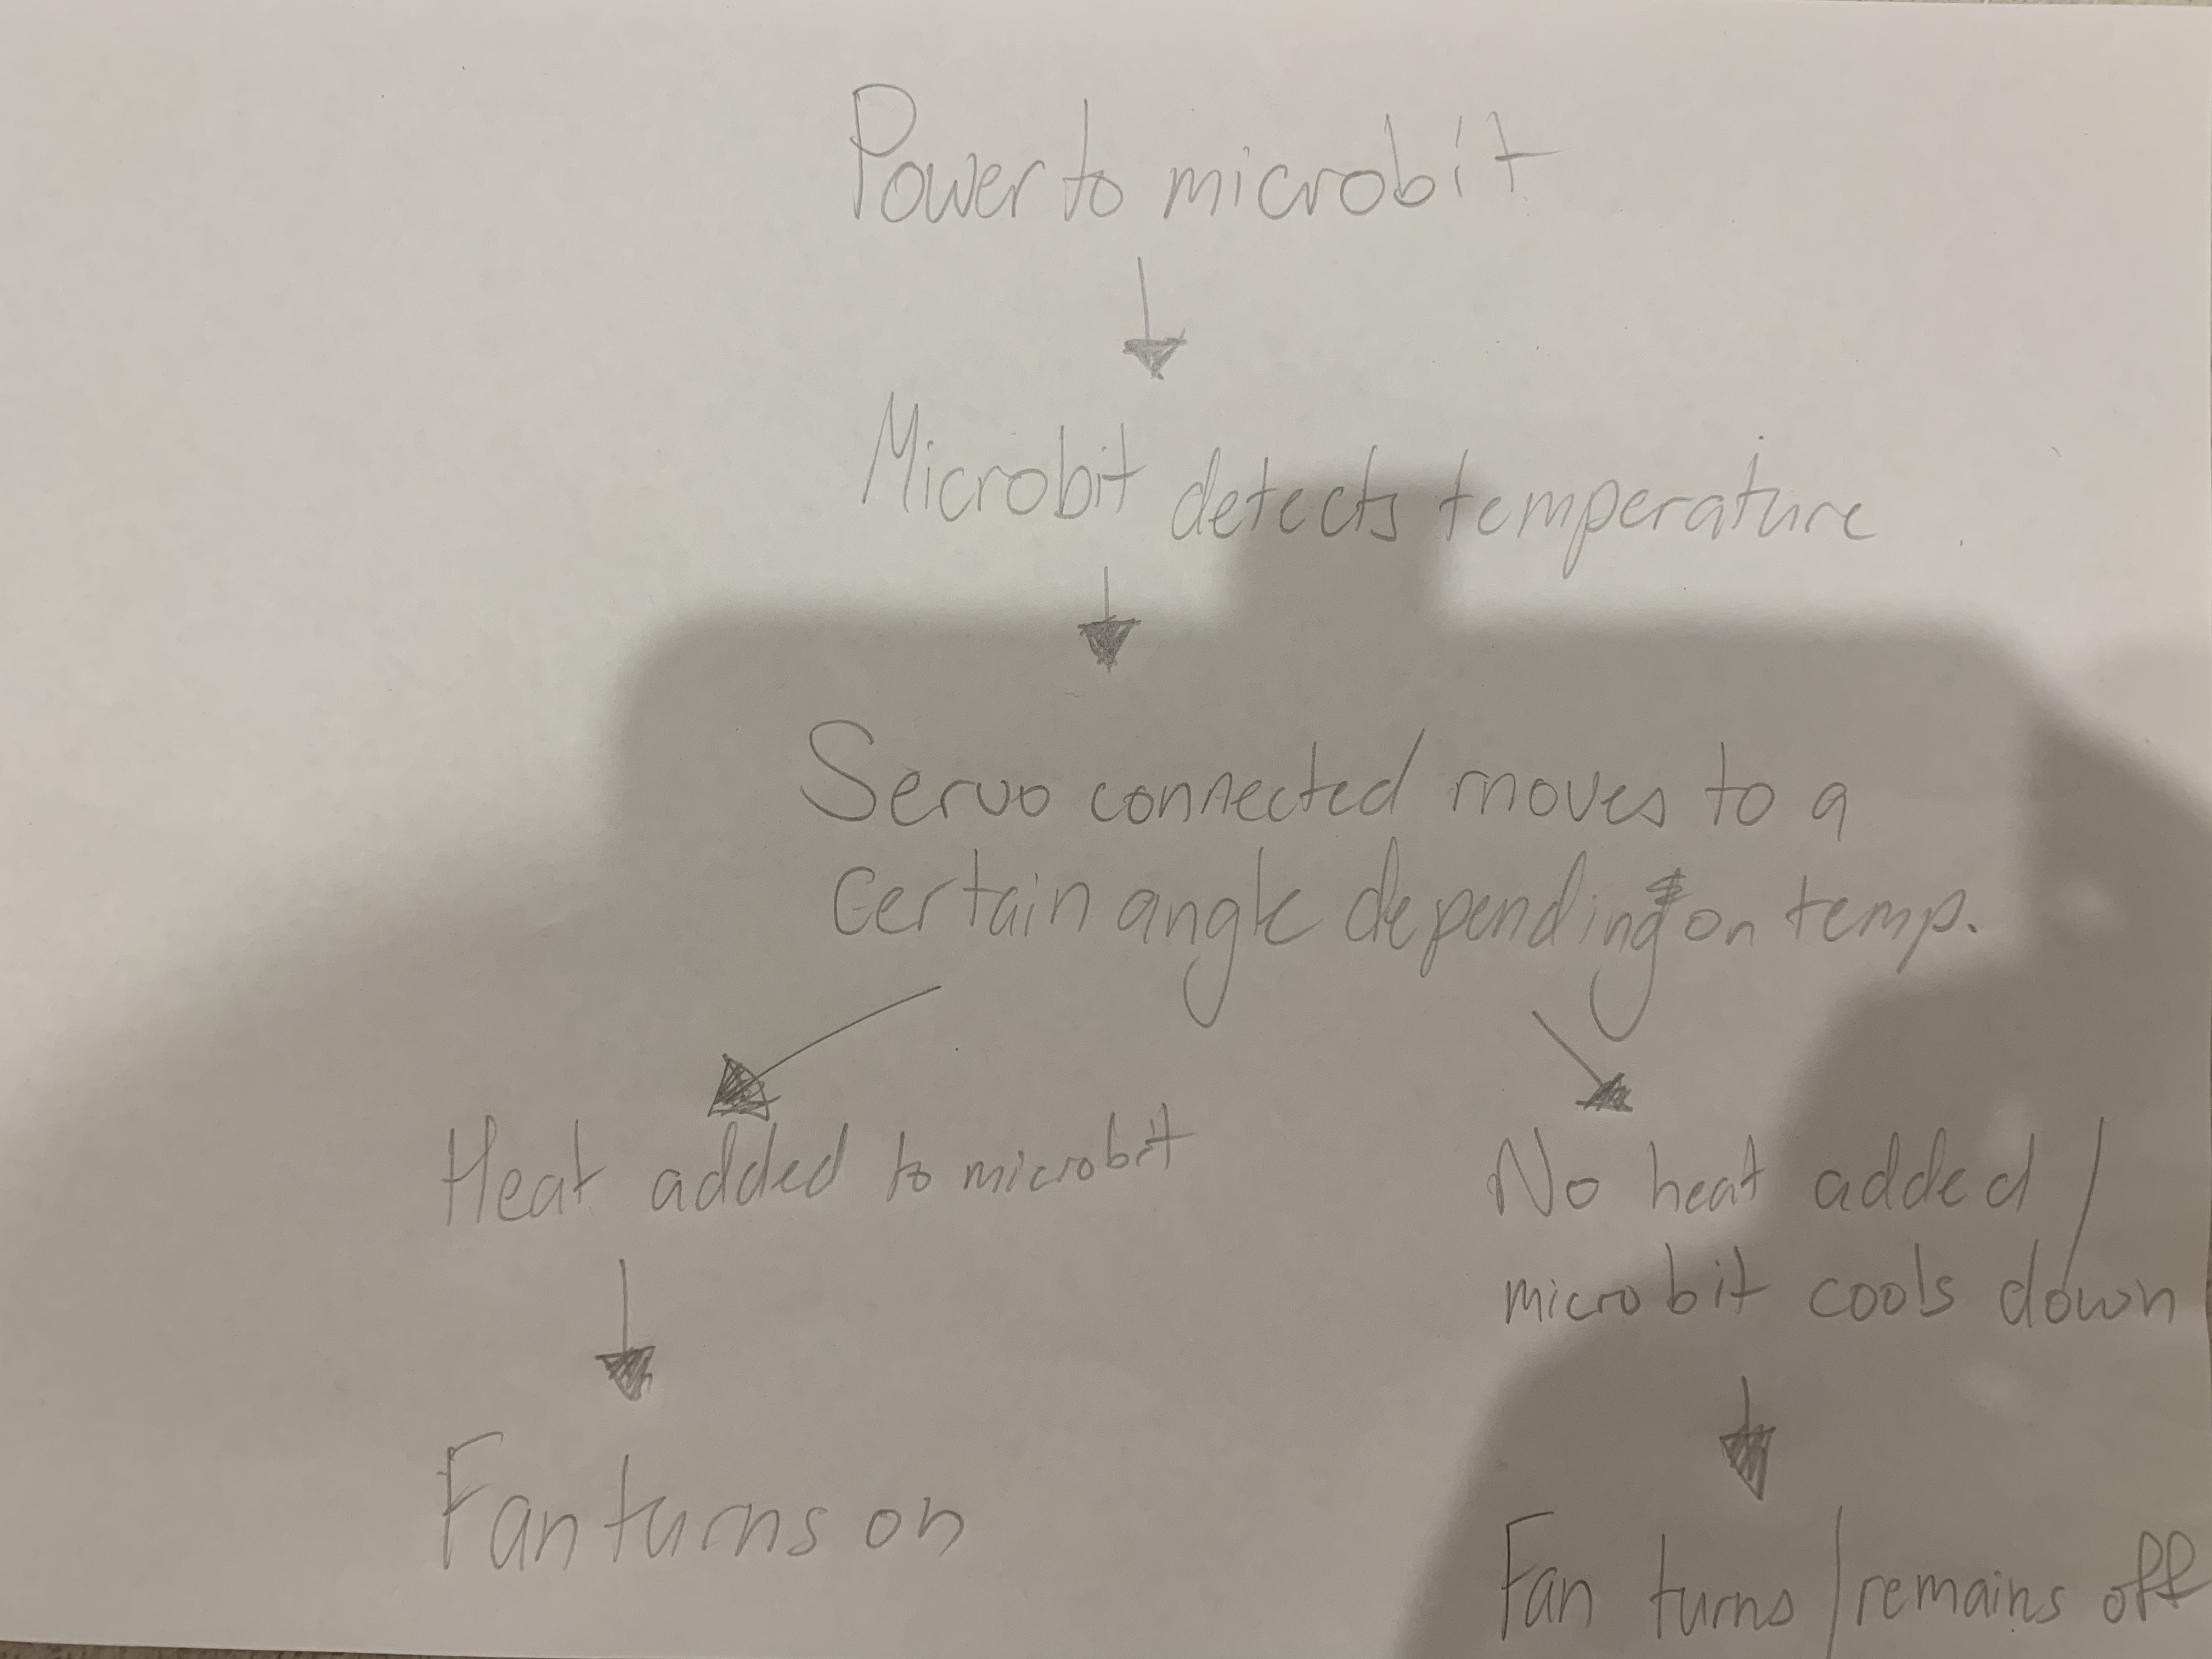 Power to microbit
Microbit detects temperature
Servo connected moves to a
certain angle depending on temp.
Heat added to microbit
No heat added /
microbit cools down
Fan turns on
Fan turns / remains off